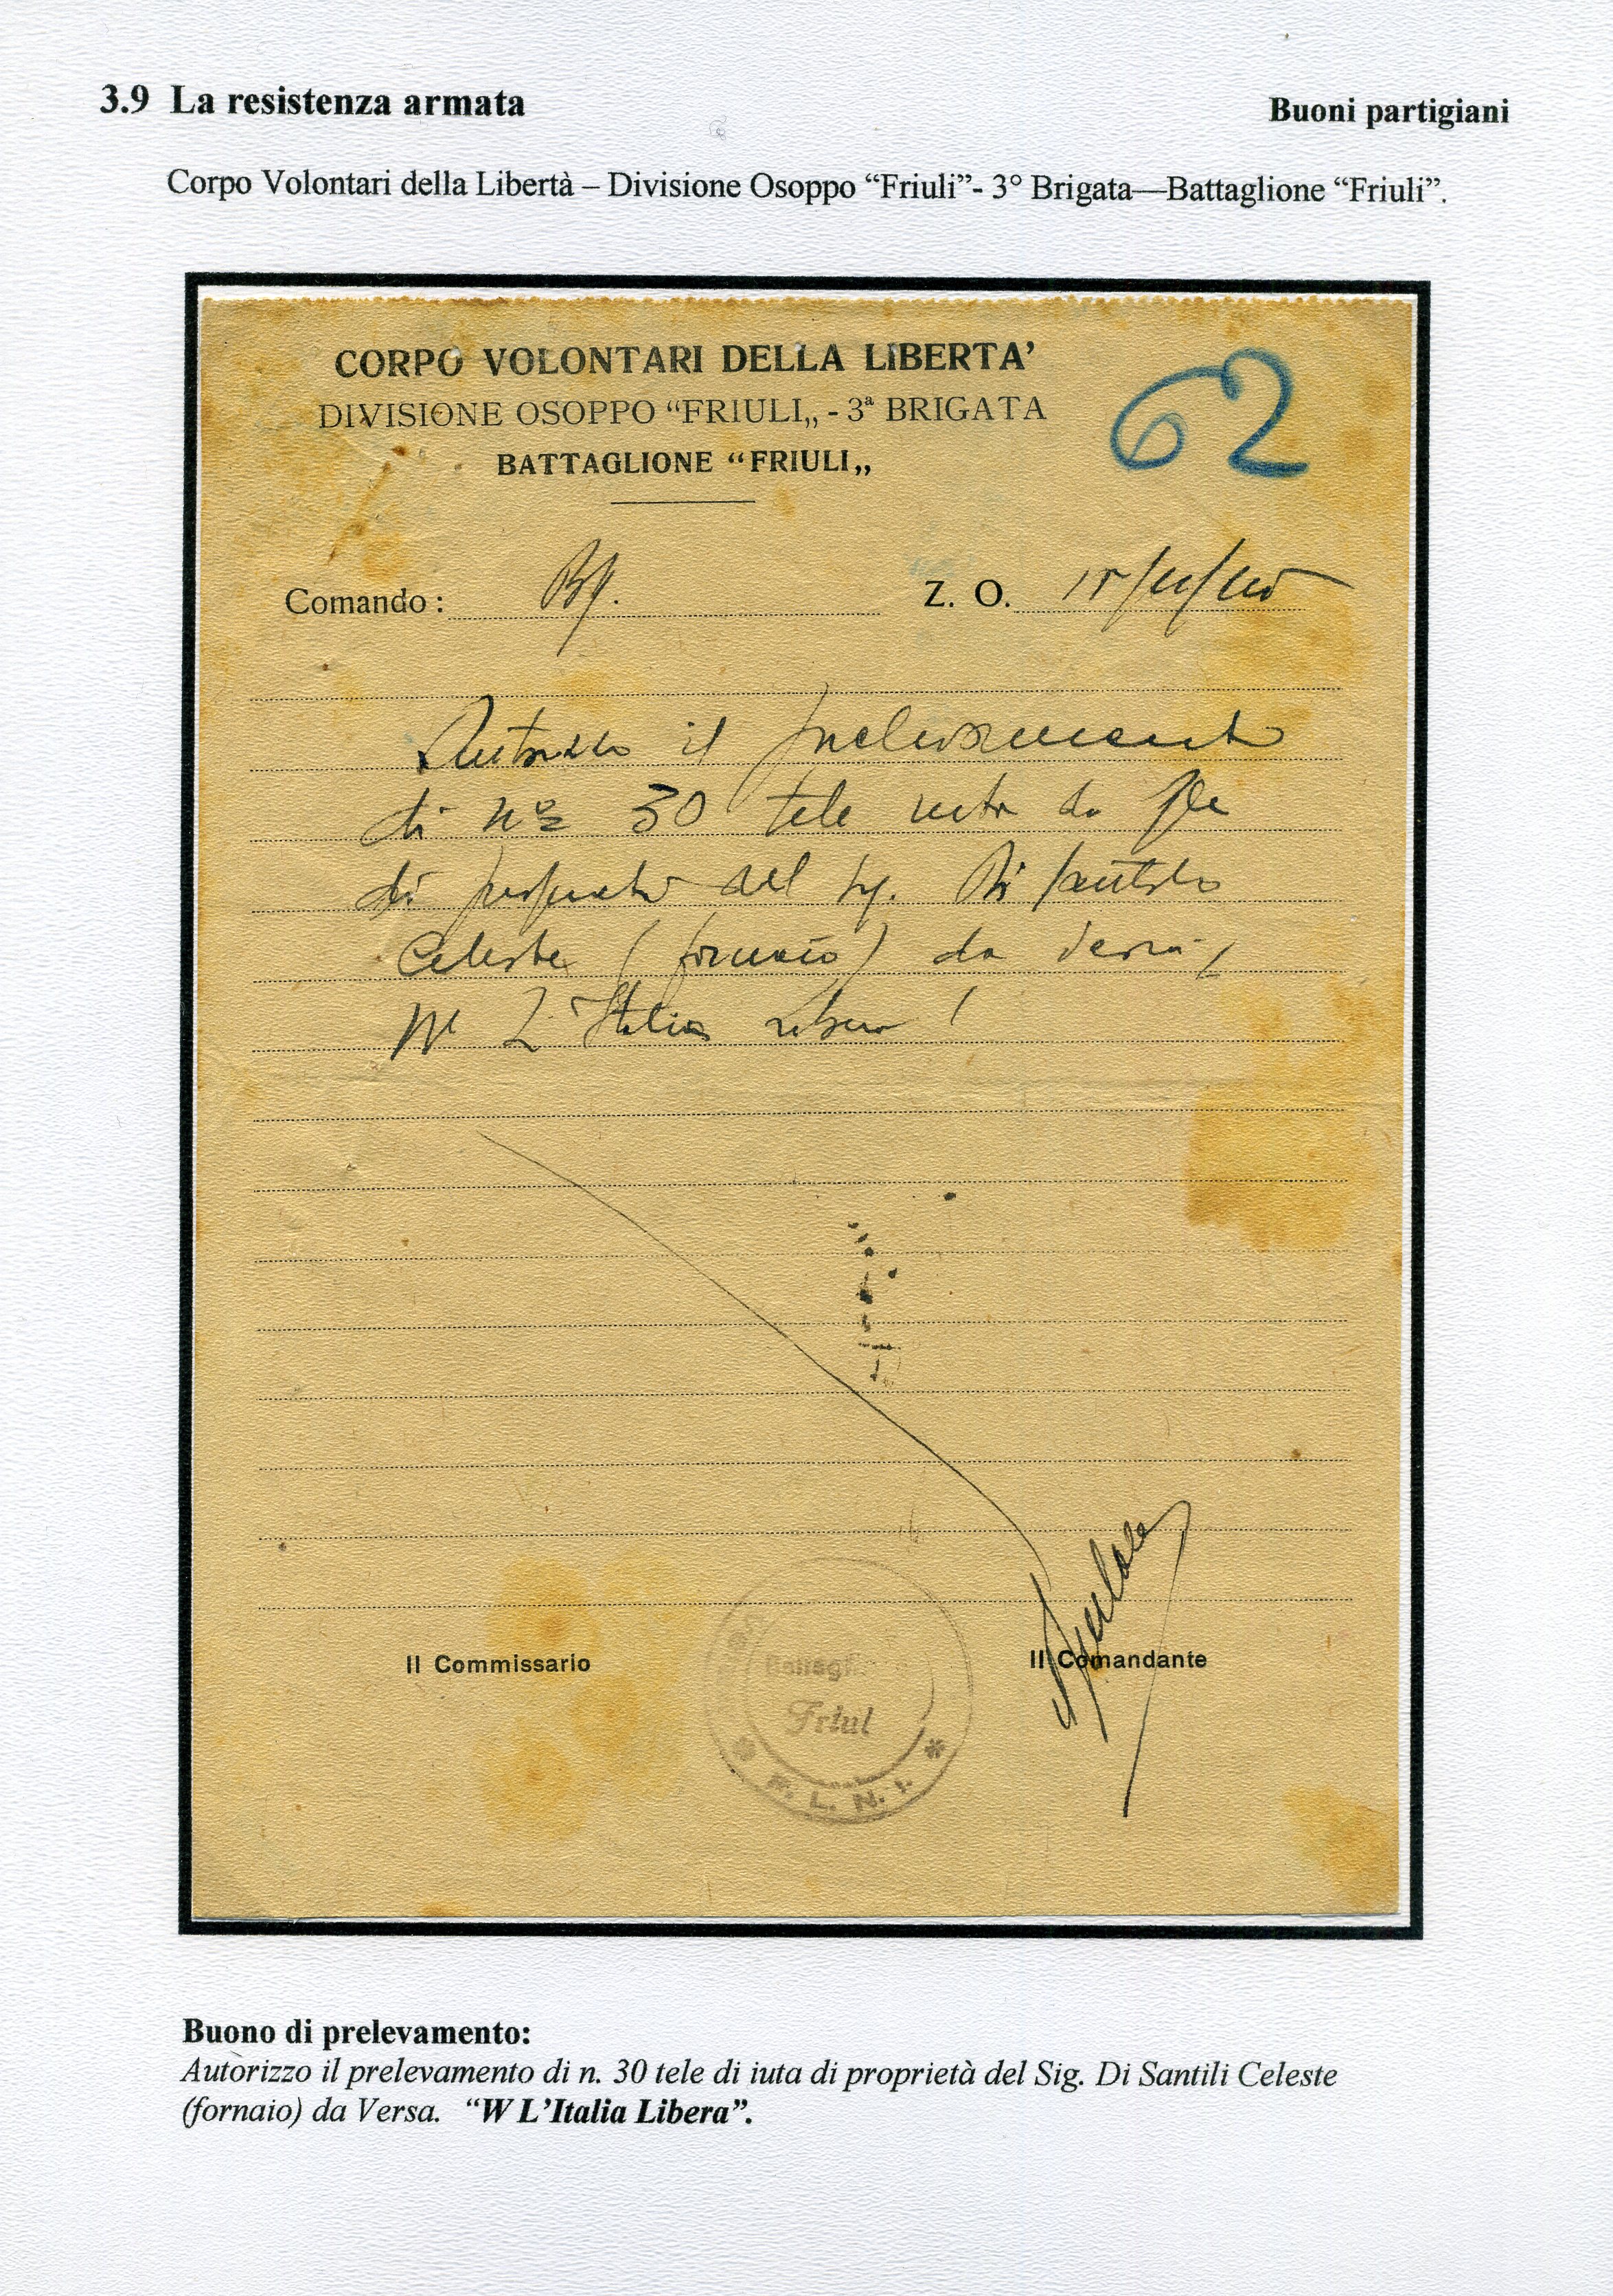 3.9 La resistenza armata
Buoni partigiani
Corpo Volontari della Libertà – Divisione Osoppo “Friuli”- 3° Brigata—Battaglione “Friuli”.
CORPO VOLONTARI DELLA LIBERTA’
DIVISIONE OSOPPO “FRIULI„ - 3ª BRIGATA
BATTAGLIONE “FRIULI„
62
Comando: Bg.
Z. O.
Autorizzo il prelevamento
di n° 30 tele iuta da
di proprietà del Sig. Di
Celeste (fornaio) da Versa,
W L'Italia libera!
Il Commissario
Battagl.
Friul
F. L. N. I.
Il Comandante
Buono di prelevamento:
Autorizzo il prelevamento di n. 30 tele di iuta di proprietà del Sig. Di Santili Celeste
(fornaio) da Versa. “W L’Italia Libera”.